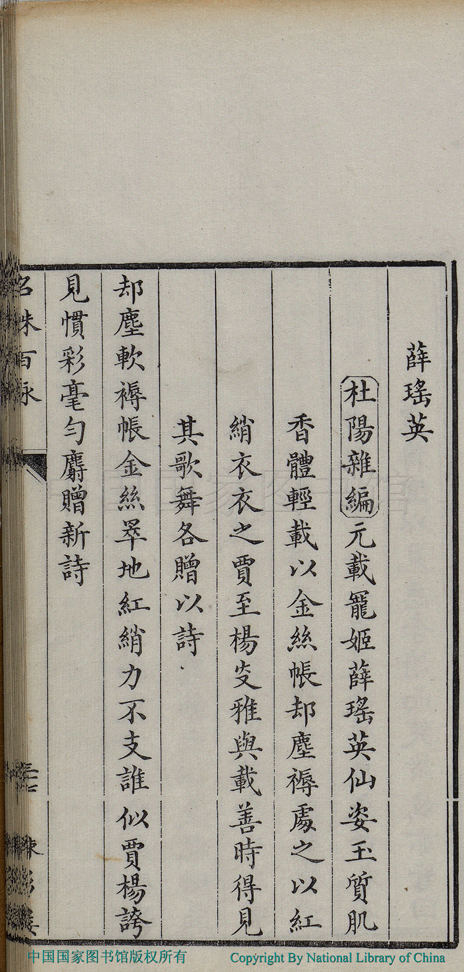 薛瑤英
杜陽雜編元載寵姬薛瑤英仙姿玉質肌
香體輕載以金絲帳却塵褥處之以紅
綃衣衣之賈至楊炎雅與載善時得見
其歌舞各贈以詩
却塵軟褥帳金絲翠地紅綃力不支誰似賈楊誇
見慣彩毫勻麝贈新詩
名姝百詠
中国国家图书馆版权所有
Copyright By National Library of China